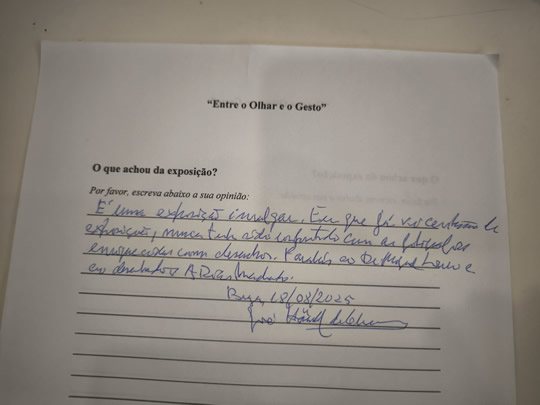 “Entre o Olhar e o Gesto”
O que achou da exposição?
Por favor, escreva abaixo a sua opinião:
É uma exposição invulgar. Eu que já vi centenas de
exposições, nunca tinha sido confrontado com as fotografias
enriquecidas com desenhos. Parabéns ao e
ao desenhador
18/08/2025
José